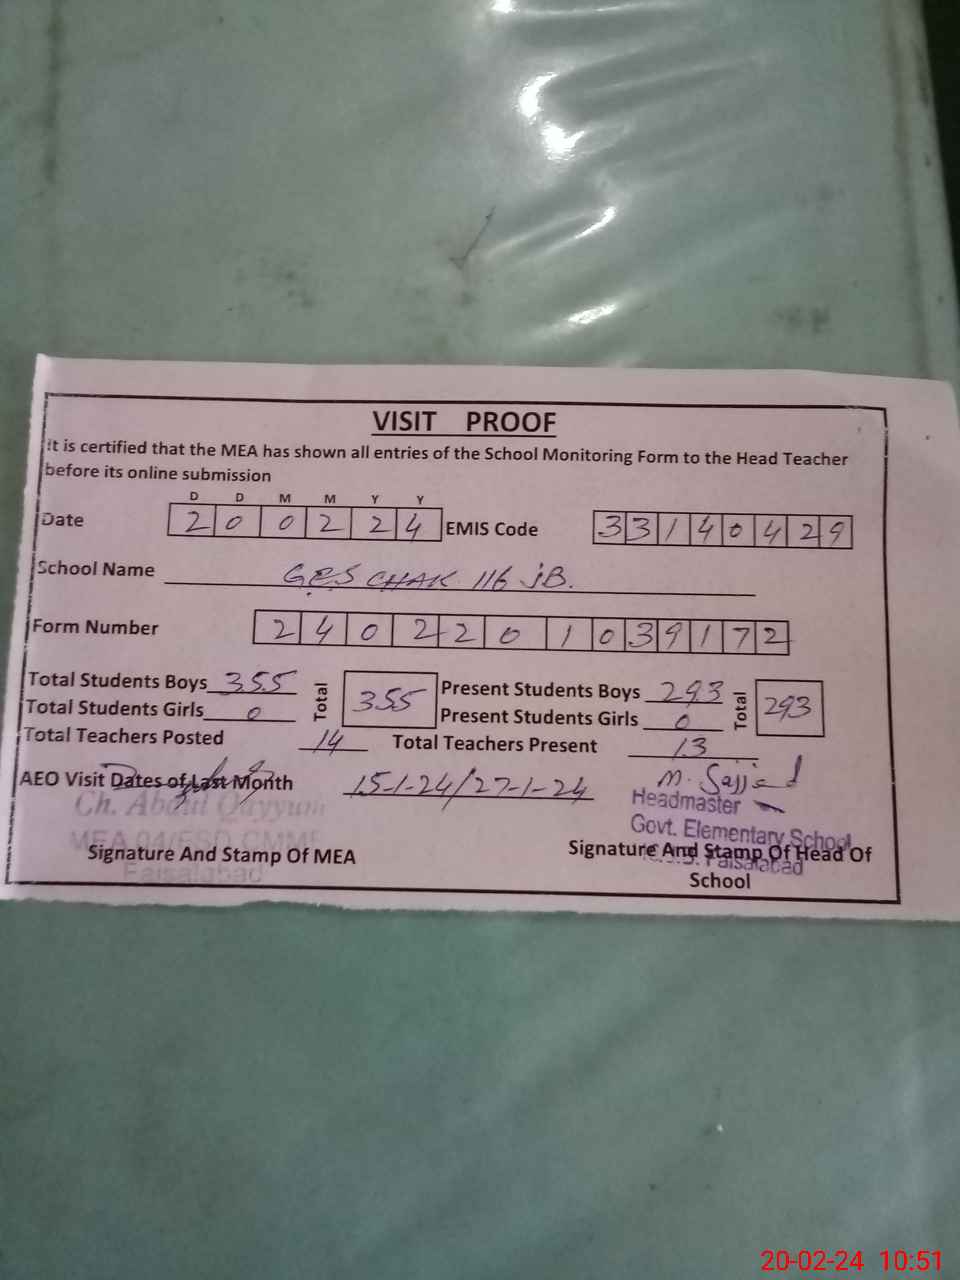 VISIT PROOF
It is certified that the MEA has shown all entries of the School Monitoring Form to the Head Teacher
before its online submission
D D M M Y Y
Date 2 0 0 2 2 4 EMIS Code 3 3 1 4 0 4 2 9
School Name GES CHAK 116 JB.
Form Number 2 4 0 2 2 0 1 0 3 9 1 7 2
Total Students Boys 355 Total 355 Present Students Boys 293 Total 293
Total Students Girls 0 Present Students Girls 0
Total Teachers Posted 14 Total Teachers Present 13
AEO Visit Dates of Last Month 15-1-24/27-1-24 M. Sajjad
Ch. Abdul Qayyum Headmaster
MEA 04/FSD CMMF Govt. Elementary School
Signature And Stamp Of MEA Signature And Stamp Of Head Of
Faisalabad Faisalabad
School
20-02-24 10:51